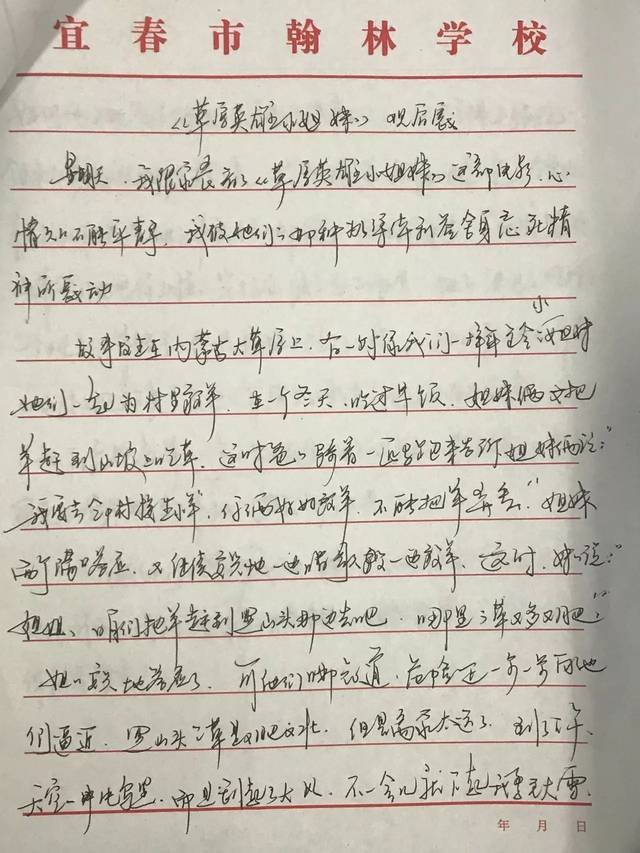 宜春市翰林学校
《草原英雄小姐妹》观后感
星期天,我跟家长看了《草原英雄小姐妹》这部电影,心
情久久不能平静,我被她们的那种为集体利益舍身忘死精
神所感动
故事发生在内蒙古大草原上,有一对像我们一样年龄小姐妹
她们一起为村里放羊,在一个冬天,吃过早饭,姐妹俩又把
羊赶到山坡上吃草,这时爸爸骑着一匹马跑来告诉姐妹俩说:"
我要去村接生小羊",你俩好好放羊,不能把羊弄丢"姐妹
两个满口答应,又继续高兴地一边唱歌一边放羊,这时,妹妹说:"
姐姐,咱们把羊赶到黑山头那边去吧,哪里的草又多又肥"
姐姐高兴地答应了,可他们哪知道,危险正一步一步向他
们逼近,黑山头的草是又肥又壮,但是离家太远了,到了下午,
天空一片乌黑,而且刮起了大风,不一会儿就下起鹅毛大雪,
年 月 日